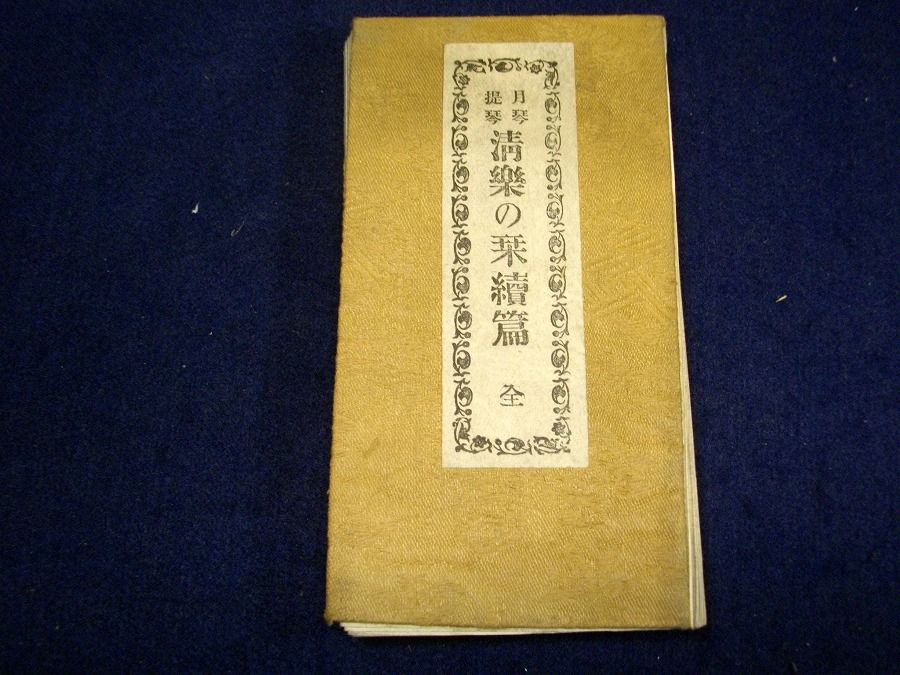 月琴
提琴
清樂の栞續篇
全